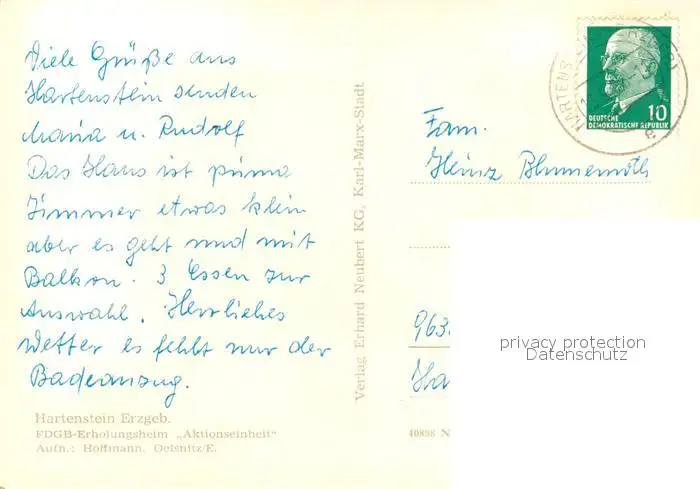 Viele Grüße aus
Hartenstein senden
Maria u. Rudolf
Das Haus ist prima
Zimmer etwas klein
aber es geht und mit
Balkon. 3 Essen zur
Auswahl. Herrliches
Wetter es fehlt nur der
Badeanzug.
Hartenstein Erzgeb.
FDGB-Erholungsheim „Aktionseinheit“
Aufn.: Hoffmann, Oelsnitz/E.
Verlag Erhard Neubert KG, Karl-Marx-Stadt
HARTENS
10
DEUTSCHE
DEMOKRATISCHE REPUBLIK
a
Fam.
Heinz Blumenroth
963.
Ha
privacy protection
Datenschutz
40838 N